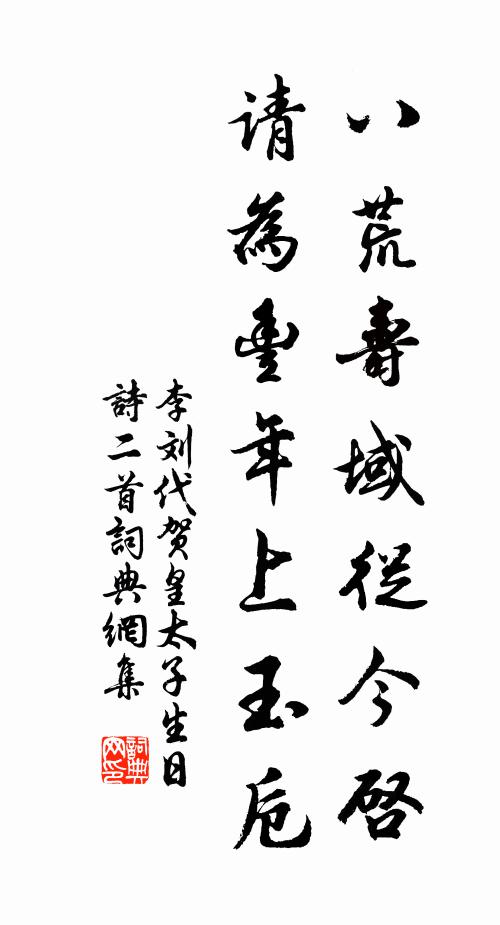 八荒壽域從今啓
請為豐年上玉卮
李刘代贺皇太子生日
詩二首詞典網集
詞典
网印